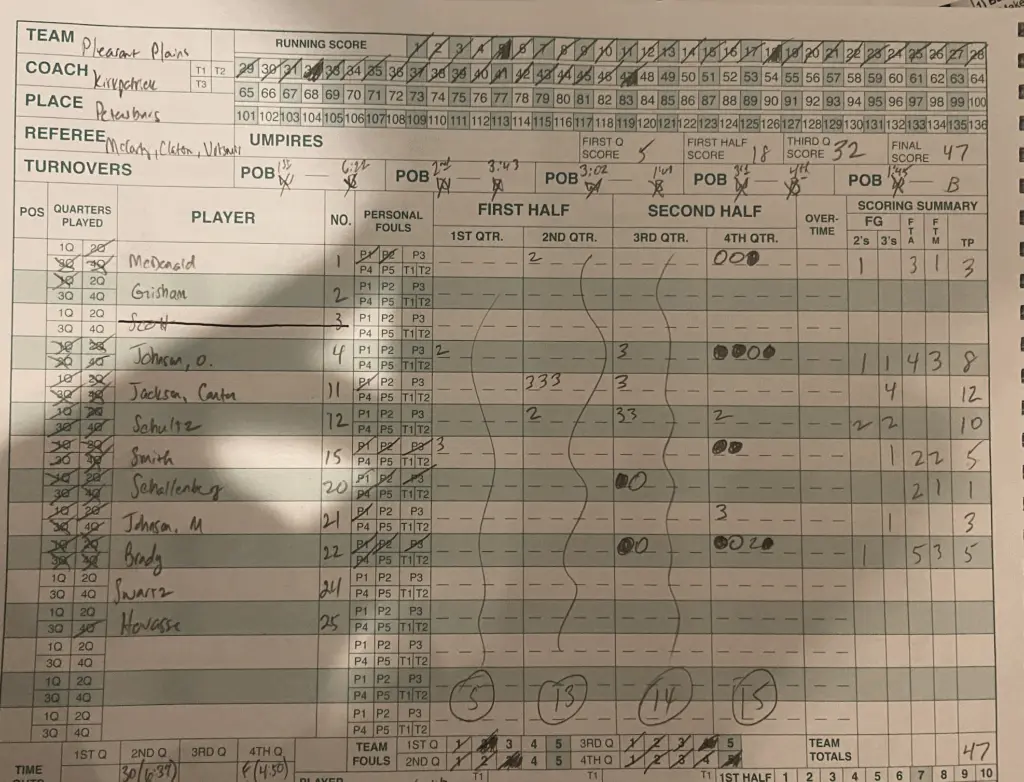 TEAM Pleasant Plains RUNNING SCORE 1 2 3 4 5 6 7 8 9 10 11 12 13 14 15 16 17 18 19 20 21 22 23 24 25 26 27 28
COACH Kirkpatrick T1 T2 T3 29 30 31 32 33 34 35 36 37 38 39 40 41 42 43 44 45 46 47 48 49 50 51 52 53 54 55 56 57 58 59 60 61 62 63 64
65 66 67 68 69 70 71 72 73 74 75 76 77 78 79 80 81 82 83 84 85 86 87 88 89 90 91 92 93 94 95 96 97 98 99 100
PLACE Petersburg 101 102 103 104 105 106 107 108 109 110 111 112 113 114 115 116 117 118 119 120 121 122 123 124 125 126 127 128 129 130 131 132 133 134 135 136
REFEREE McCarty, Claton, UMPIRES FIRST Q SCORE 5 FIRST HALF SCORE 18 THIRD Q SCORE 32 FINAL SCORE 47
TURNOVERS POB 1st 6:22 POB 2nd 3:43 POB 3:02 1:41 POB 3rd 4th POB 1:45 B
POS QUARTERS PLAYED PLAYER NO. PERSONAL FOULS FIRST HALF SECOND HALF OVER-TIME SCORING SUMMARY
1ST QTR. 2ND QTR. 3RD QTR. 4TH QTR. FG 2's 3's FTA FTM TP
1Q 2Q P1 P2 P3
3Q 4Q McDonald 1 P4 P5 T1 T2 2 1 3 1 3
1Q 2Q P1 P2 P3
3Q 4Q Grisham 2 P4 P5 T1 T2
1Q 2Q P1 P2 P3
3Q 4Q Scott 3 P4 P5 T1 T2
1Q 2Q P1 P2 P3
3Q 4Q Johnson, O. 4 P4 P5 T1 T2 2 3 1 1 4 3 8
1Q 2Q P1 P2 P3
3Q 4Q Jackson, Canton 11 P4 P5 T1 T2 333 3 4 12
1Q 2Q P1 P2 P3
3Q 4Q Schultz 12 P4 P5 T1 T2 2 33 2 2 2 10
1Q 2Q P1 P2 P3
3Q 4Q Smith 15 P4 P5 T1 T2 3 1 2 2 5
1Q 2Q P1 P2 P3
3Q 4Q Schallenberg 20 P4 P5 T1 T2 2 1 1
1Q 2Q P1 P2 P3
3Q 4Q Johnson, M 21 P4 P5 T1 T2 3 1 3
1Q 2Q P1 P2 P3
3Q 4Q Brady 22 P4 P5 T1 T2 2 1 5 3 5
1Q 2Q P1 P2 P3
3Q 4Q Swartz 24 P4 P5 T1 T2
1Q 2Q P1 P2 P3
3Q 4Q Hovasse 25 P4 P5 T1 T2
1Q 2Q P1 P2 P3
3Q 4Q P4 P5 T1 T2
1Q 2Q P1 P2 P3
3Q 4Q P4 P5 T1 T2 5 13 14 15
1Q 2Q P1 P2 P3
3Q 4Q P4 P5 T1 T2
1ST Q 2ND Q 3RD Q 4TH Q TEAM FOULS 1ST Q 1 2 3 4 5 3RD Q 1 2 3 4 5 TEAM TOTALS 47
TIME 30(6:37) F(4:50) 2ND Q 1 2 3 4 5 4TH Q 1 2 3 4 5
PLAYER T1 T1 1ST HALF 1 2 3 4 5 6 7 8 9 10